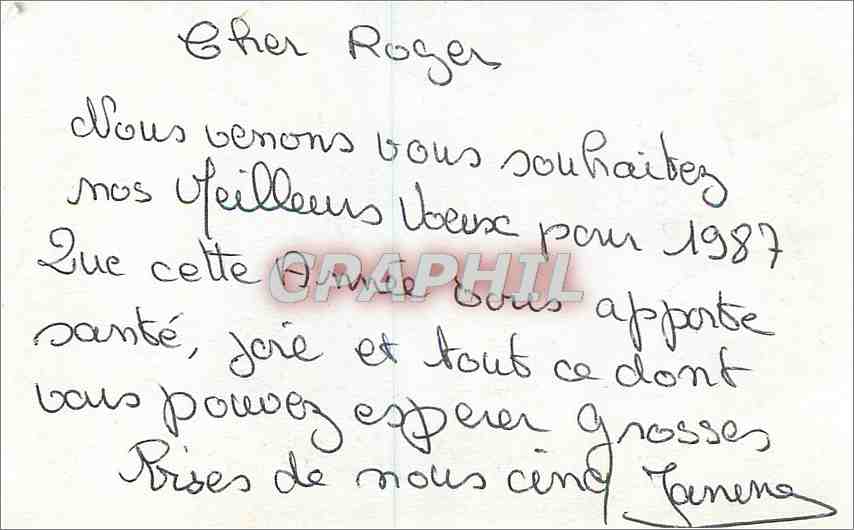 Cher Roger
Nous venons vous souhaitez
nos Meilleurs Voeux pour 1987
Que cette Année vous apporte
CPAPHIL
santé, joie et tout ce dont
vous pouvez esperer grosses
Bises de nous cinq Janine